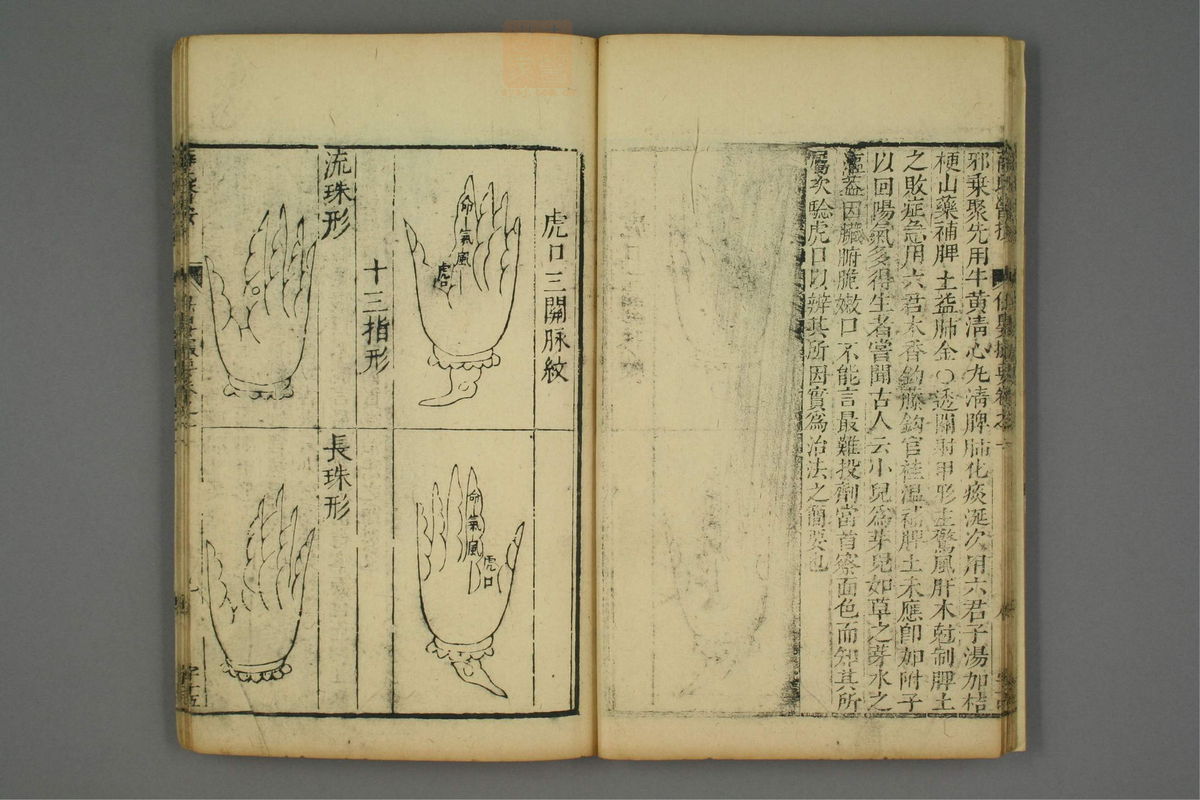 邪乘聚先用牛黃清心丸清脾肺化痰涎次用六君子湯加桔
梗山藥補脾土益肺金〇透關射甲形主驚風肝木尅制脾土
之敗症急用六君木香鈎藤鈎官桂溫補脾土未應卽加附子
以回陽氣多得生者嘗聞古人云小兒爲芽兒如草之芽水之
漚蓋因臟腑脆嫩口不能言最難投劑當首察面色而知其所
屬次騐虎口以辨其所因實爲治法之簡要也
虎口三關脉紋
命 氣 風
虎口
命 氣 風
虎口
十三指形
流珠形
長珠形